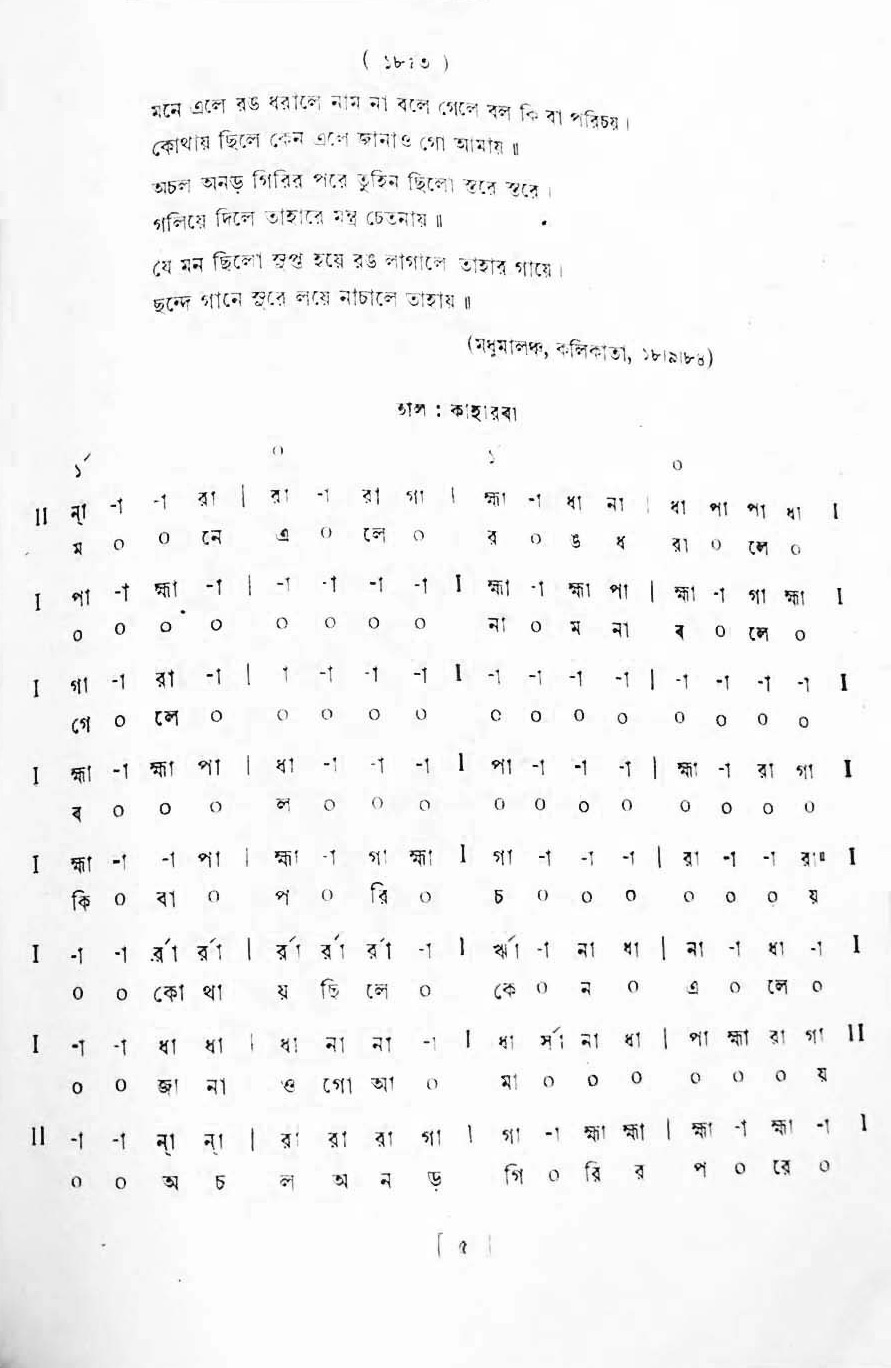 ( ১৮৭৩ )
মনে এলে রঙ ধরালে নাম না বলে গেলে বল কি বা পরিচয়।
কোথায় ছিলে কেন এলে জানাও গো আমায়॥
অচল অনড় গিরির পরে তুহিন ছিলো স্তরে স্তরে।
গলিয়ে দিলে তাহারে মন্ত্র চেতনায়॥
যে মন ছিলো সুপ্ত হয়ে রঙ লাগালে তাহার গায়ে।
ছন্দে গানে সুরে লয়ে নাচালে তাহায়॥
(মধুমালঞ্চ, কলিকাতা, ১৮।৯।৮৪)
তাল : কাহারবা
১́ ০ ১ ০
II ন্া -া -া রা | রা -া রা গা I হ্মা -া ধা না | ধা পা পা ধা I
ম ০ ০ নে এ ০ লে ০ র ০ ঙ ধ রা ০ লে ০
I পা -া হ্মা -া | -া -া -া -া I হ্মা -া হ্মা পা | হ্মা -া গা হ্মা I
০ ০ ০ ০ ০ ০ ০ ০ না ০ ম না ব ০ লে ০
I গা -া রা -া | া -া -া -া I -া -া -া -া | -া -া -া -া I
গে ০ লে ০ ০ ০ ০ ০ ০ ০ ০ ০ ০ ০ ০ ০
I হ্মা -া হ্মা পা | ধা -া -া -া I পা -া -া -া | হ্মা -া রা গা I
ব ০ ০ ০ ল ০ ০ ০ ০ ০ ০ ০ ০ ০ ০ ০
I হ্মা -া -া পা | হ্মা -া গা হ্মা I গা -া -া -া | রা -া -া রাঃ I
কি ০ বা ০ প ০ রি ০ চ ০ ০ ০ ০ ০ ০ য়
I -া -া র্রা র্রা | র্রা র্রা র্রা -া I র্ঋা -া না ধা | না -া ধা -া I
০ ০ কো থা য় ছি লে ০ কে ০ ন ০ এ ০ লে ০
I -া -া ধা ধা | ধা না না -া I ধা র্সা না ধা | পা হ্মা রা গা II
০ ০ জা না ও গো আ ০ মা ০ ০ ০ ০ ০ ০ য়
II -া -া ন্া ন্া | রা রা রা গা I গা -া হ্মা হ্মা | হ্মা -া হ্মা -া I
০ ০ অ চ ল অ ন ড় গি ০ রি র প ০ রে ০
[ ৫ ]